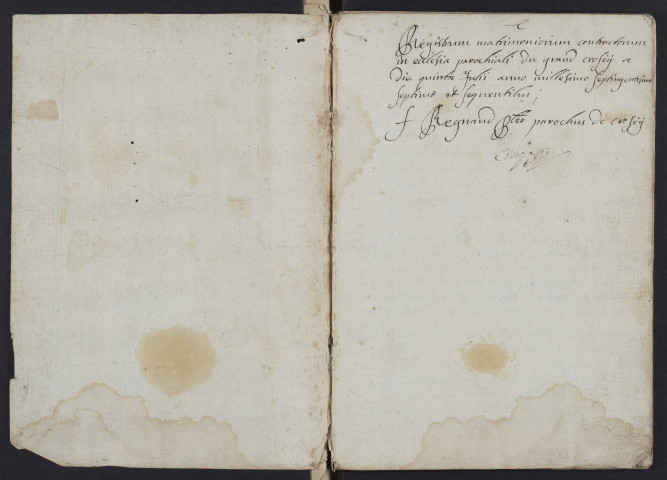 Registrum matrimoniorum contractorum
in eclesia parochiali du grand crosey a
die quinta Julii anno millesimo septingentesimo
septimo et sequentibus;
f Regnaud pbr parochus de crosey